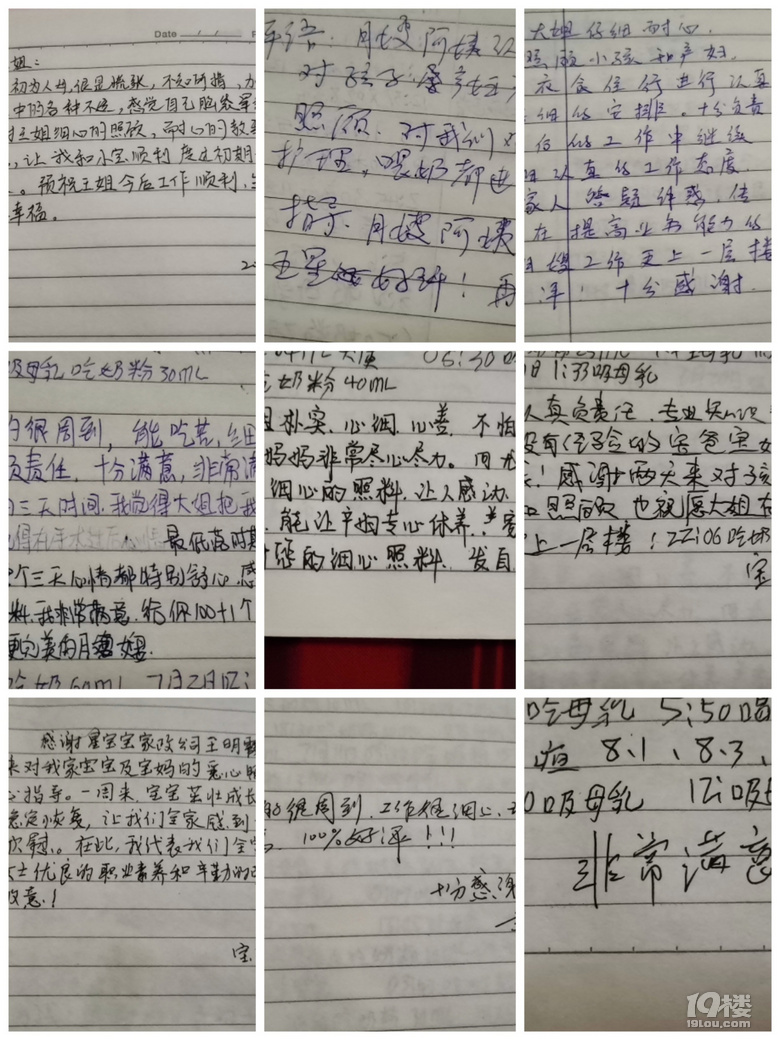 Date
姐：
初为人母，很是慌张，不知所措，
中的各种不适，感觉自己脸
王姐细心的照顾，耐心的教
，让我和小宝顺利度过初期
。预祝王姐今后工作顺利，
幸福。
评语：月嫂阿姨
对孩子
照顾．对我们
护理，喂奶都
指导．月嫂阿姨
五星好评！再
大姐仔细耐心．
照顾小孩和产妇．
衣食住行进行认真
细的安排。十分负责
后的工作中继续
认真的工作态度．
家人答疑解惑．
在提高业务能力的
月嫂工作更上一层楼
十分感谢．
吸母乳吃奶粉30mL
的很周到，能吃苦，细
负责任，十分满意，非常满
三天时间．我觉得大姐把我
最低落时期
个三天心情都特别舒心．感
料．我非常满意．给你100+1个
更完美的月嫂
吃奶60mL 7月2日
06:30
吃奶粉40mL
朴实．心细．心善．不怕
妈妈非常尽心尽力。
细心的照料．让人感动．
能让产妇专心休养．
的细心照料．发自
1:33吸母乳
认真负责任．专业知识
没有经验的宝爸宝妈
！感谢两天来对孩
照顾 也祝愿大姐在
上一层楼！22:06吃奶
宝
感谢星宝宝家政公司王明
来对我家宝宝及宝妈的悉心照
心指导。一周来，宝宝茁壮成长
恢复，让我们全家感到
欣慰。在此，我代表我们全
女士优良的职业素养和辛勤的
敬意！
宝
的很周到．工作很细心．
100%好评！！！
十分感谢
吃母乳 5:50喝
疸 8.1、8.3、
吸母乳 12:吸
非常满意
19楼
19lou.com